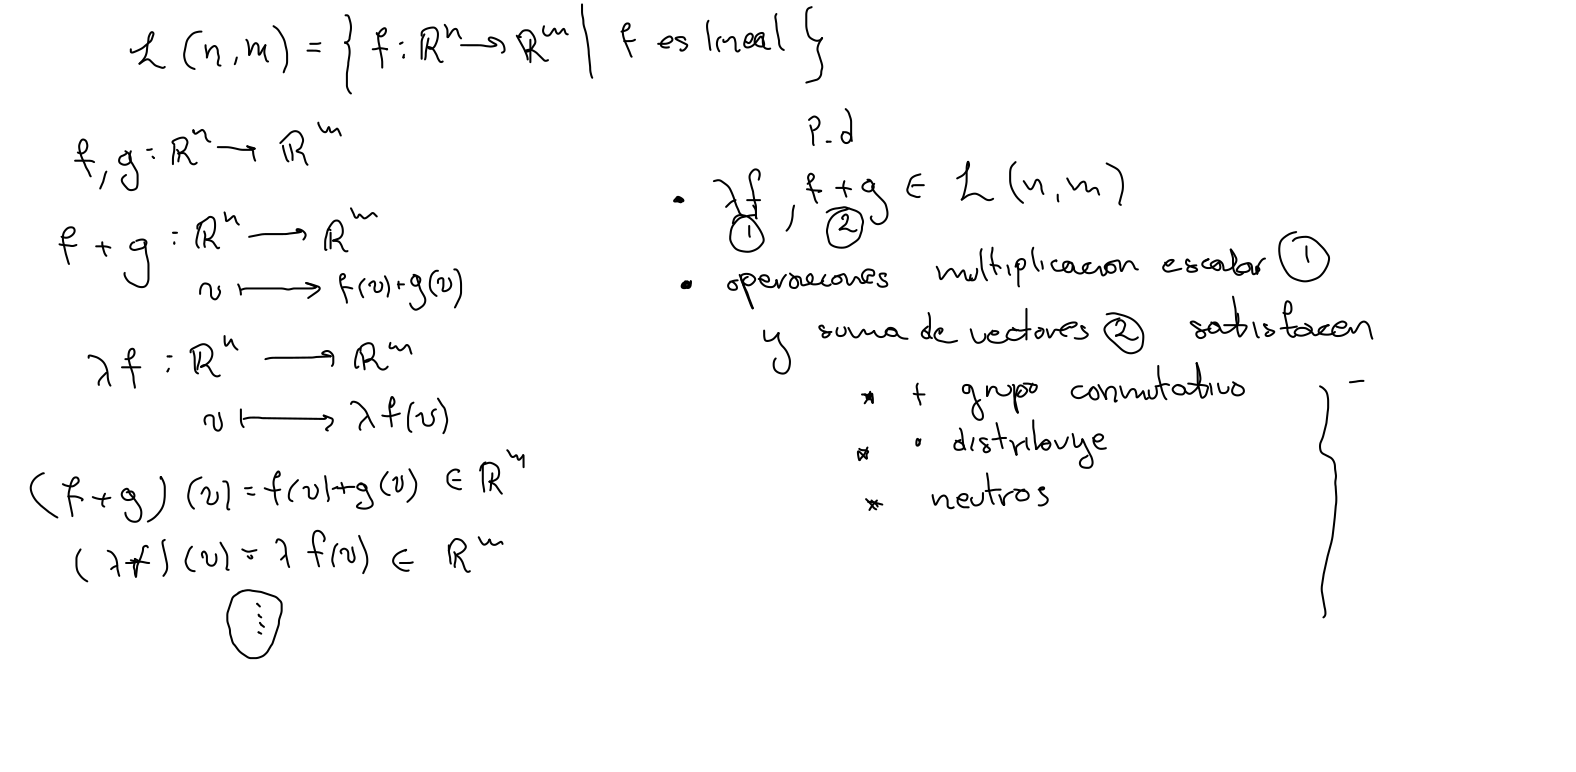 ℒ (n,m) = { f : ℝⁿ → ℝᵐ | f es lineal }
f, g : ℝⁿ → ℝᵐ
f + g : ℝⁿ ⟶ ℝᵐ
v ⟼ f(v)+g(v)
λf : ℝⁿ ⟶ ℝᵐ
v ⟼ λf(v)
(f+g)(v) = f(v)+g(v) ∈ ℝᵐ
(λf)(v) = λ f(v) ∈ ℝᵐ
P.d
• λf, f+g ∈ ℒ (n,m)
① ②
• operaciones multiplicacion escalar ①
y suma de vectores ② satisfacen
* + grupo conmutativo } -
* · distribuye
* neutros